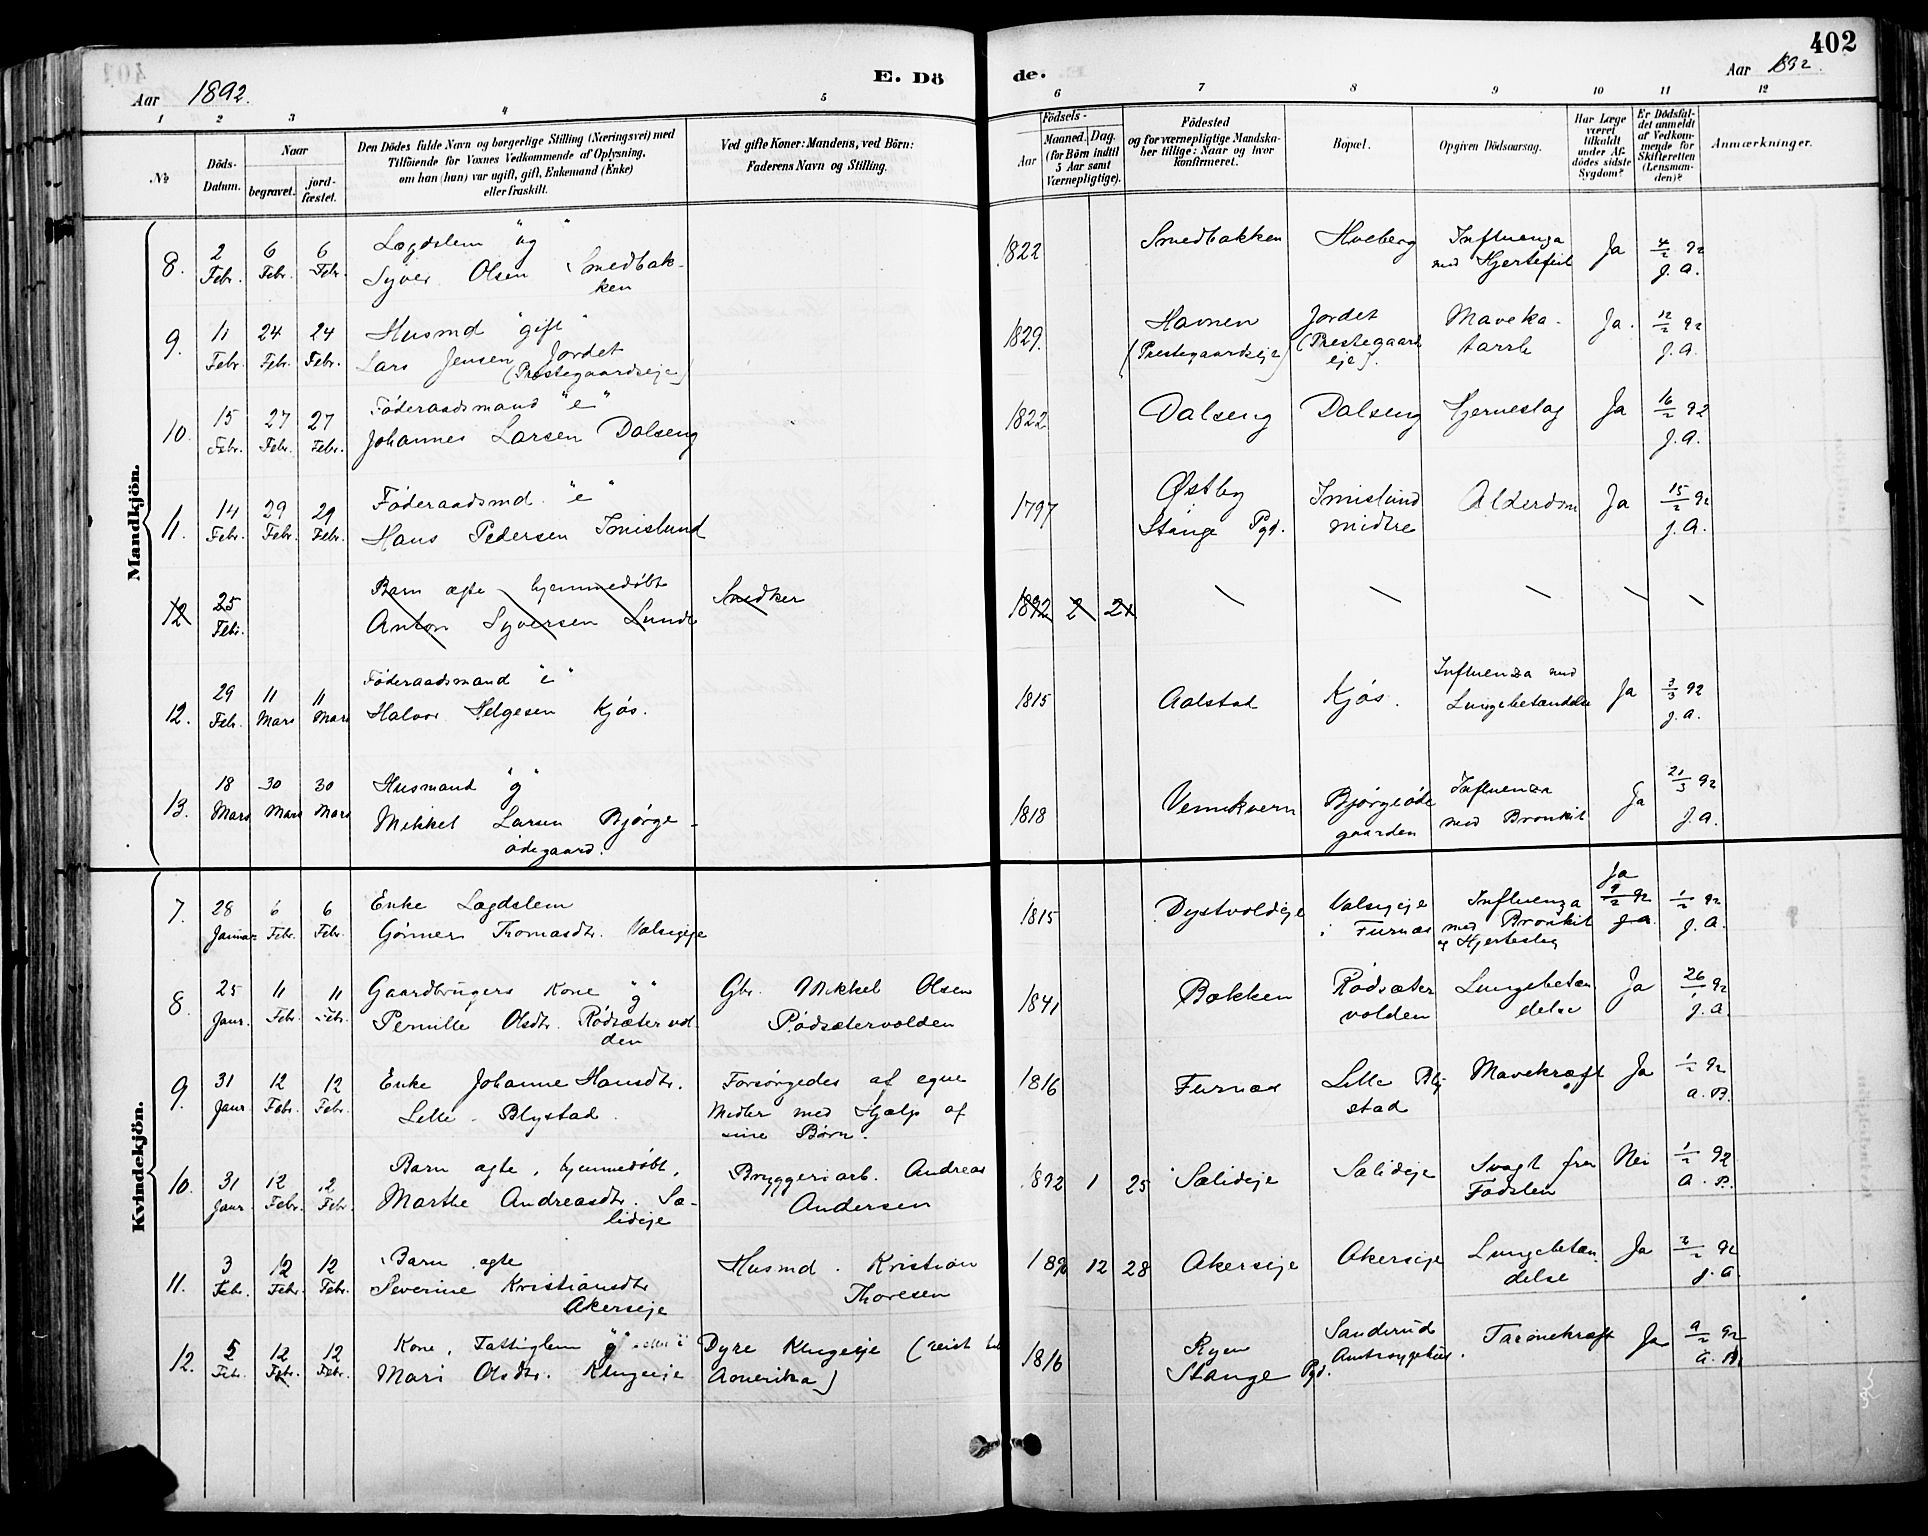 402
Aar 1892.
E. Dö
de.
Aar 1892.
1 2 3 4 5 6 7 8 9 10 11 12
No
Döds-Datum.
Naar
begravet.
jordfæstet.
Den Dödes fulde Navn og borgerlige Stilling (Næringsvei) med
Tilföiende for Voxnes Vedkommende af Oplysning,
om han (hun) var ugift, gift, Enkemand (Enke)
eller fraskilt.
Ved gifte Koner: Mandens, ved Börn:
Faderens Navn og Stilling.
Födsels-
Aar
Maaned.
Dag.
(for Börn indtil
5 Aar samt
Værnepligtige).
Födested
og for værnepligtige Mandska-
ber tillige: Naar og hvor
konfirmeret.
Bopæl.
Opgiven Dödsaarsag.
Har Læge
været
tilkaldt
under Af-
dödes sidste
Sygdom?
Er Dödsfal-
det anmeldt
af Vedkom-
mende for
Skifteretten
(Lensman-
den)?
Anmærkninger.
Mandkjön.
8. 2 Febr. 6 Febr. 6 Febr. Lægdslem "ug" Syver Olsen Smedbak-
ken 1822 Smedbakken Hveberg Influenza med Hjertefeil Ja 4/2 92 J.A.
9. 11 Febr. 24 Febr. 24 Febr. Husmd "gift" Lars Jensen Jordet
(Prestegaardseje) 1829. Havnen (Prestegaardseje) Jordet (Prestegaards
eje). Maveka-
tarrh Ja. 12/2 92 J.A.
10. 15 Febr. 27 Febr. 27 Febr. Föderaadsmand "e"
Johannes Larsen Dalseng 1822 Dalseng Dalseng Hjerneslag Ja 16/2 92 J.A.
11. 14 Febr. 29 Febr. 29 Febr. Föderaadsmd. "e"
Hans Pedersen Imislund 1797 Østby Stange Pgd. Imislund midtre Alderdom Ja 15/2 92 J.A.
12 25 Febr. Barn ægte hjemmedøbt
Anton Syversen Lunde Snedker 1892 2 21
12. 29 Febr. 11 Mars 11 Mars Föderaadsmand "e"
Halvor Helgesen Kjøs. 1815 Aalstad Kjøs. Influenza med
Lungebetændelse Ja 3/3 92 J.A.
13. 18 Mars 30 Mars 30 Mars Husmand "g"
Mikkel Larsen Bjørge-
ødegaard. 1818 Vennkvern Bjørgeøde
gaarden Influenza
med Bronkit Ja 21/3 92 J.A.
Kvindekjön.
7. 28 Januar 6 Febr. 6 Febr. Enke Lægdslem
Gønner Thomasdtr. Valseieje 1815 Dystvoldeje Valseieje
i Furnæs Influenza
med Bronkit
og Hjerteslag Ja 9/2 92 J.A. 1/2 92 J.A.
8. 25 Janr. 11 Febr. 11 Febr. Gaardbrugers Kone "g"
Pernille Olsdtr. Rødsætervol
den Gbr. Mikkel Olsen
Rødsætervolden 1841 Bakken Rødsæter
volden Lungebetæn
delse Ja 26/1 92 J.A.
9. 31 Janr 12 Febr. 12 Febr. Enke Johanne Hansdtr.
Lille-Blystad. Forsørgedes af egne
Midler med Hjælp af
sine Børn. 1816 Furnæs Lille Bly-
stad Mavekræft Ja 1/2 92 A.B.
10. 31 Janr. 12 Febr. 12 Febr. Barn ægte, hjemmedøbt,
Marthe Andreasdtr. Sæ-
lideje Bryggeriarb. Andreas
Andersen 1892 1 25 Sælideje Sælideje Svagt fra
Fødslen Nei 1/2 92 A.B.
11. 3 Febr. 12 Febr. 12 Febr. Barn ægte
Severine Kristiansdtr
Akerseje Husmd. Kristian
Thoresen 12 28 Akerseje Akerseje Lungebetæn
delse Ja J.A.
12. 5 Febr. 12 Febr. 12 Febr. Kone, Fattiglem "g"
Mari Olsdtr. Klugeeje Dyre Klugeeje (reist til
Amerika) 1816 Ryen
Stange Pgd. Sanderud
Amtssygehus. Tarmekræft Ja 9/2 92 A.B.